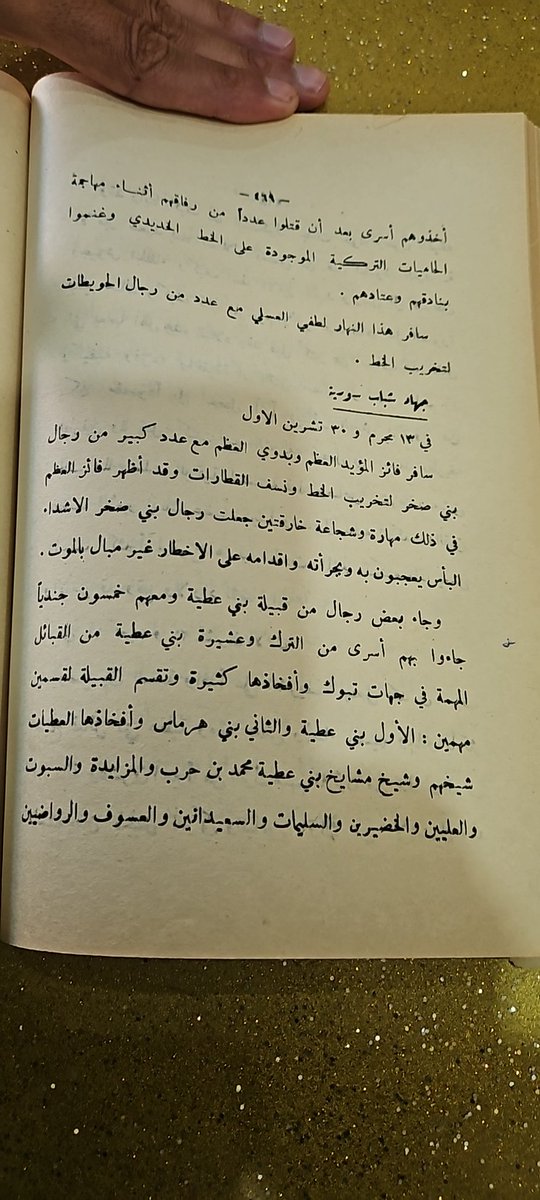 — ٤٦٩ —
أخذوهم أسرى بعد أن قتلوا عدداً من رفاقهم أثناء مهاجمة
الحاميات التركية الموجودة على الخط الحديدي وغنموا
بنادقهم وعتادهم .
سافر هذا النهار لطفي العسلي مع عدد من رجال الحويطات
لتخريب الخط .
جهاد شباب سورية
في ١٣ محرم و ٣٠ تشرين الاول
سافر فائز المؤيد العظم وبدوي العظم مع عدد كبير من رجال
بني صخر لتخريب الخط ونسف القطارات وقد أظهر فائز العظم
في ذلك مهارة وشجاعة خارقتين جعلت رجال بني صخر الاشداء
البأس يعجبون به وبجرأته واقدامه على الاخطار غير مبال بالموت .
وجاء بعض رجال من قبيلة بني عطية ومعهم خمسون جندياً
جاءوا بهم أسرى من الترك وعشيرة بني عطية من القبائل
المهمة في جهات تبوك وأفخاذها كثيرة وتقسم القبيلة لقسمين
مهمين : الأول بني عطية والثاني بني هرماس وأفخاذها العطيات
شيخهم وشيخ مشايخ بني عطية محمد بن حرب والمزايدة والسبوت
والعليين والخضيرين والسليمات والسعيدانين والعسوف والرواضيين